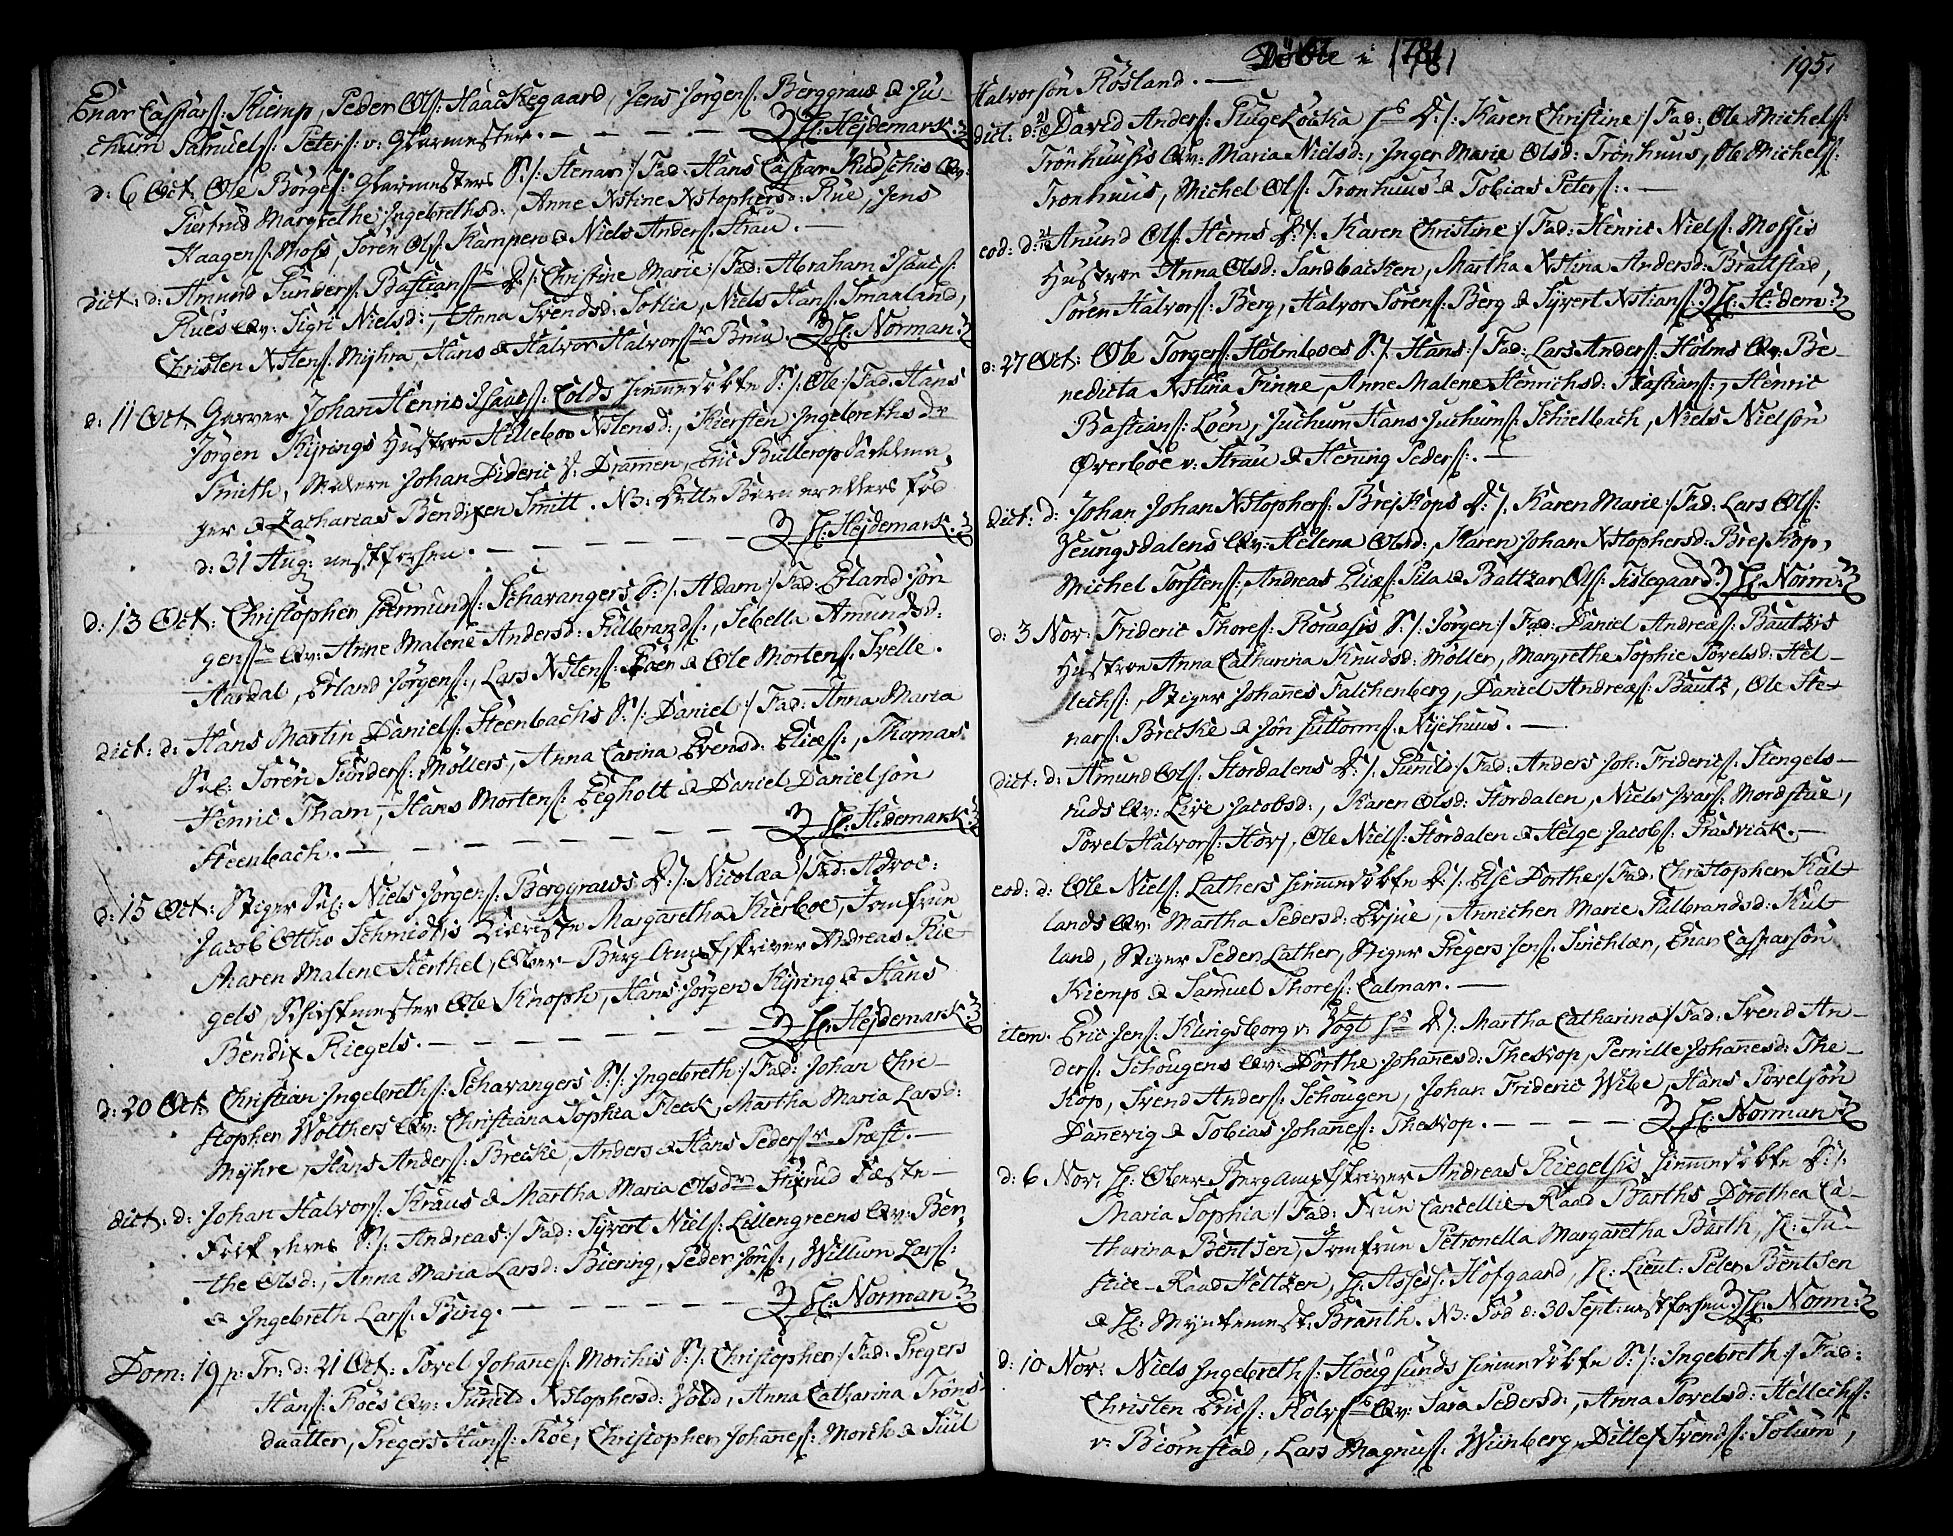 Enar Caspars: Kiemp, Peder Ols: Haaskegaard, Jens Jörgens: Berggraw & Ju-
chum Samuels: Peters: v: Glarmester. — — — — — H: Hejdemark.
d: 6 Oct: Ole Börges: Glarmesters S:/: Stenar:/ Fad: Hans Caspar Kudschis Qv:
Giertrud Margrethe Ingebrethsd:, Anne Xstine Xstophersd: Rue, Jens
Haagens: Moss, Sören Ols: Kampen & Niels Anders: Strau. —
dict: d: Amund Gunders: Bastians: D:/: Christine Marie:/ Fad: Abraham Isaacs:
Rues Qv: Sigri Nielsd:, Anna Svendsd: Soklia, Niels Hans: Smaaland,
Christen Xstens: Myhra, Hans & Halvor Halvors: Bruu. H: Norman
d: 11 Oct: Garver Johan Henric Isaacs: Colds hiemmedöbte S:/: Ole:/ Fad: Hans
Jörgen Kÿrings Hustroe Hilleboe Xstensd:, Kiersten Ingebrethsdr
Smith, Mester Johan Dideric v: Drammen, Eric Bullerop Sachlena
ger & Zacharias Bendixen Smitt. NB: Dette Barn er ellers fød
d: 31 Aug: nestforhen. — — — — — — H: Hejdemark.
d: 13 Oct: Christopher Germunds: Schavangers S:/: Adam:/ Fad: Erland Jör
gens: Qv: Anne Malene Andersd: Fulbrands:, Sebella Amundsd:
Aardal, Erland Jörgens:, Lars Xstens: Loen & Ole Mortens: Svelle.
dict: d: Hans Martin Daniels: Steenbachs S:/: Daniel:/ Fad: Anna Maria
Sal: Sören Gunders: Möllers, Anna Carina Evensd: Eliæs:, Thomas
Henric Tham, Hans Mortens: Eegholt & Daniel Danielsön
Steenbach. — — — — — — — H: Hejdemark
d: 15 Oct: Stiger Sal: Niels Jörgens: Berggraws D:/: Nicolæa:/ Fad: Advoc:
Jacob Otthe Schmidts Kieriste Margaretha Kierboe, Jomfrue
Maren Malene Sterthel, Ober-Berg Amtskriver Andreas Rie-
gels, Schichtmester Ole Knoph, Hans Jörgen Kÿring & Hans
Bendix Riegels. — — — — — — H: Hejdemark.
d: 20 Oct: Christian Ingebreths: Schavangers S:/: Ingebreth:/ Fad: Johan Chri-
stopher Wolthers Qv: Christiana Sophia Fleck, Martha Maria Larsd:
Mÿhre, Hans Anders: Brecke, Anders & Hans Peders: Præst. —
dict: d: Johan Halvors: Kraus & Martha Maria Olsdr Stixrud Fæste-
folk deres S:/: Andreas:/ Fad: Syvert Niels: Lillengreens Qv: Ber
the Olsd:, Anna Maria Larsd: Biering, Peder Jöns:, Willum Lars:
& Ingebreth Lars: Bing. — — — — — H: Norman
Dom: 19 p: Tr: d: 21 Oct: Povel Johanes: Morchis S:/: Christopher:/ Fad: Gregers
Hans: Röes Qv: Gunild Xstophersd: Vold, Anna Catharina Tröns-
daatter, Gregers Hans: Röe, Christopher Johanes: Morch & Giul
Döbte i 1781
195.
Halvorsön Rösland. —
dict: d: 21 David Anders: Fluge Loaka hs D:/: Karen Christine:/ Fad: Ole Michels:
Trönhuusis Qv: Maria Nielsd:, Inger Marie Olsd: Trönhuus, Ole Michels:
Trönhuus, Michel Ols: Tronhuus & Tobias Peters: —
eod: d: Anund Ols: Hems D:/: Karen Christine:/ Fad: Henric Niels: Mossis
Hustroe Anna Olsd: Sandbacken, Martha Xstina Andersd: Brattstad,
Sören Halvors: Berg, Halvor Sörens: Berg & Syvert Xstians: H: H:dem:
d: 27 Oct: Ole Torgers: Holmboes S:/: Hans:/ Fad: Lars Anders: Holms Qv: Be-
nedicta Xstina Finne, Anne Malene Henrichsd: Bastians:, Henric
Bastians: Loen, Juchum Hans Juchums: Schielbach, Niels Nielsön
Overboe v: Strau & Hening Peders: —
dict: d: Johan Johan Xstophers: Brejskops D:/: Karen Marie:/ Fad: Lars Ols:
Jeungsdalens Qv: Helena Olsd:, Karen Johan Xstophersd: Brejskop,
Michel Torstens:, Andreas Eliæs: Lila & Baltzar Ols: Fislegaard: H: Norm:
d: 3 Nov: Frideric Thores: Roraasis S:/: Jörgen:/ Fad: Daniel Andreæs: Bautzis
Hustroe Anna Catharina Knudsd: Möller, Margrethe Sophie Povelsd: Hel-
lechs:, Stiger Johanes Falchenberg, Daniel Andreæs: Bautz, Ole Ste-
nars: Brecke & Jön Guttorms: Nÿehuus. —
dict: d: Amund Ols: Stordalens D:/: Gunild:/ Fad: Anders Joh: Friderics: Stengels-
ruds Qv: Live Jacobsd:, Karen Olsd: Stordalen, Niels Ivars: Mordstue,
Povel Halvors: Hovj, Ole Niels: Stordalen & Helge Jacobs: Graavick. —
eod: d: Ole Niels: Lathers hiemmedöbte D:/: Else Dorthe:/ Fad: Christopher Kul-
lands Qv: Martha Pedersd: Ersjue, Annichen Marie Fulbrandsd: Kul-
land, Stiger Peder Lather, Stiger Gregers Jens: Svichlær, Enar Casparsön
Kiemp & Samuel Thores: Calmar. —
item. Eric Jens: Klingsborg v: Vogt hs D:/: Martha Catharina:/ Fad: Svend An-
ders: Schougens Qv: Dorthe Johanesd: Theskop, Pernille Johanesd: The-
skop, Svend Anders: Schougen, Johan Frideric Wibe, Hans Povelsön
Danevig & Tobias Johanes: Theskop. — — — — H: Norman
d: 6 Nov: H: Ober Berg Amtskriver Andreas Riegelsis hiemmedöbte D:/:
Maria Sophia:/ Fad: Frue Cancellie-Raad Barths Dorothea Ca-
tharina Bentsen, Jomfrue Petronella Margaretha Barth, H: Ju-
stice-Raad Heltzen, H: Assess: Hofgaard, H: Lieut: Peter Bentsen
& H: Myntemest: Branth. NB: Fød d: 30 Sept: nestforhen H: Norm:
d: 10 Nov: Niels Ingebreths: Hougsunds hiemmedöbte S:/: Ingebreth:/ Fad:
Christen Erics: Holvs: Qv: Sara Pedersd:, Anna Povelsd: Hellechs:
v: Biörnstad, Lars Magnus: Winberg, Ditlef Svends: Solum,